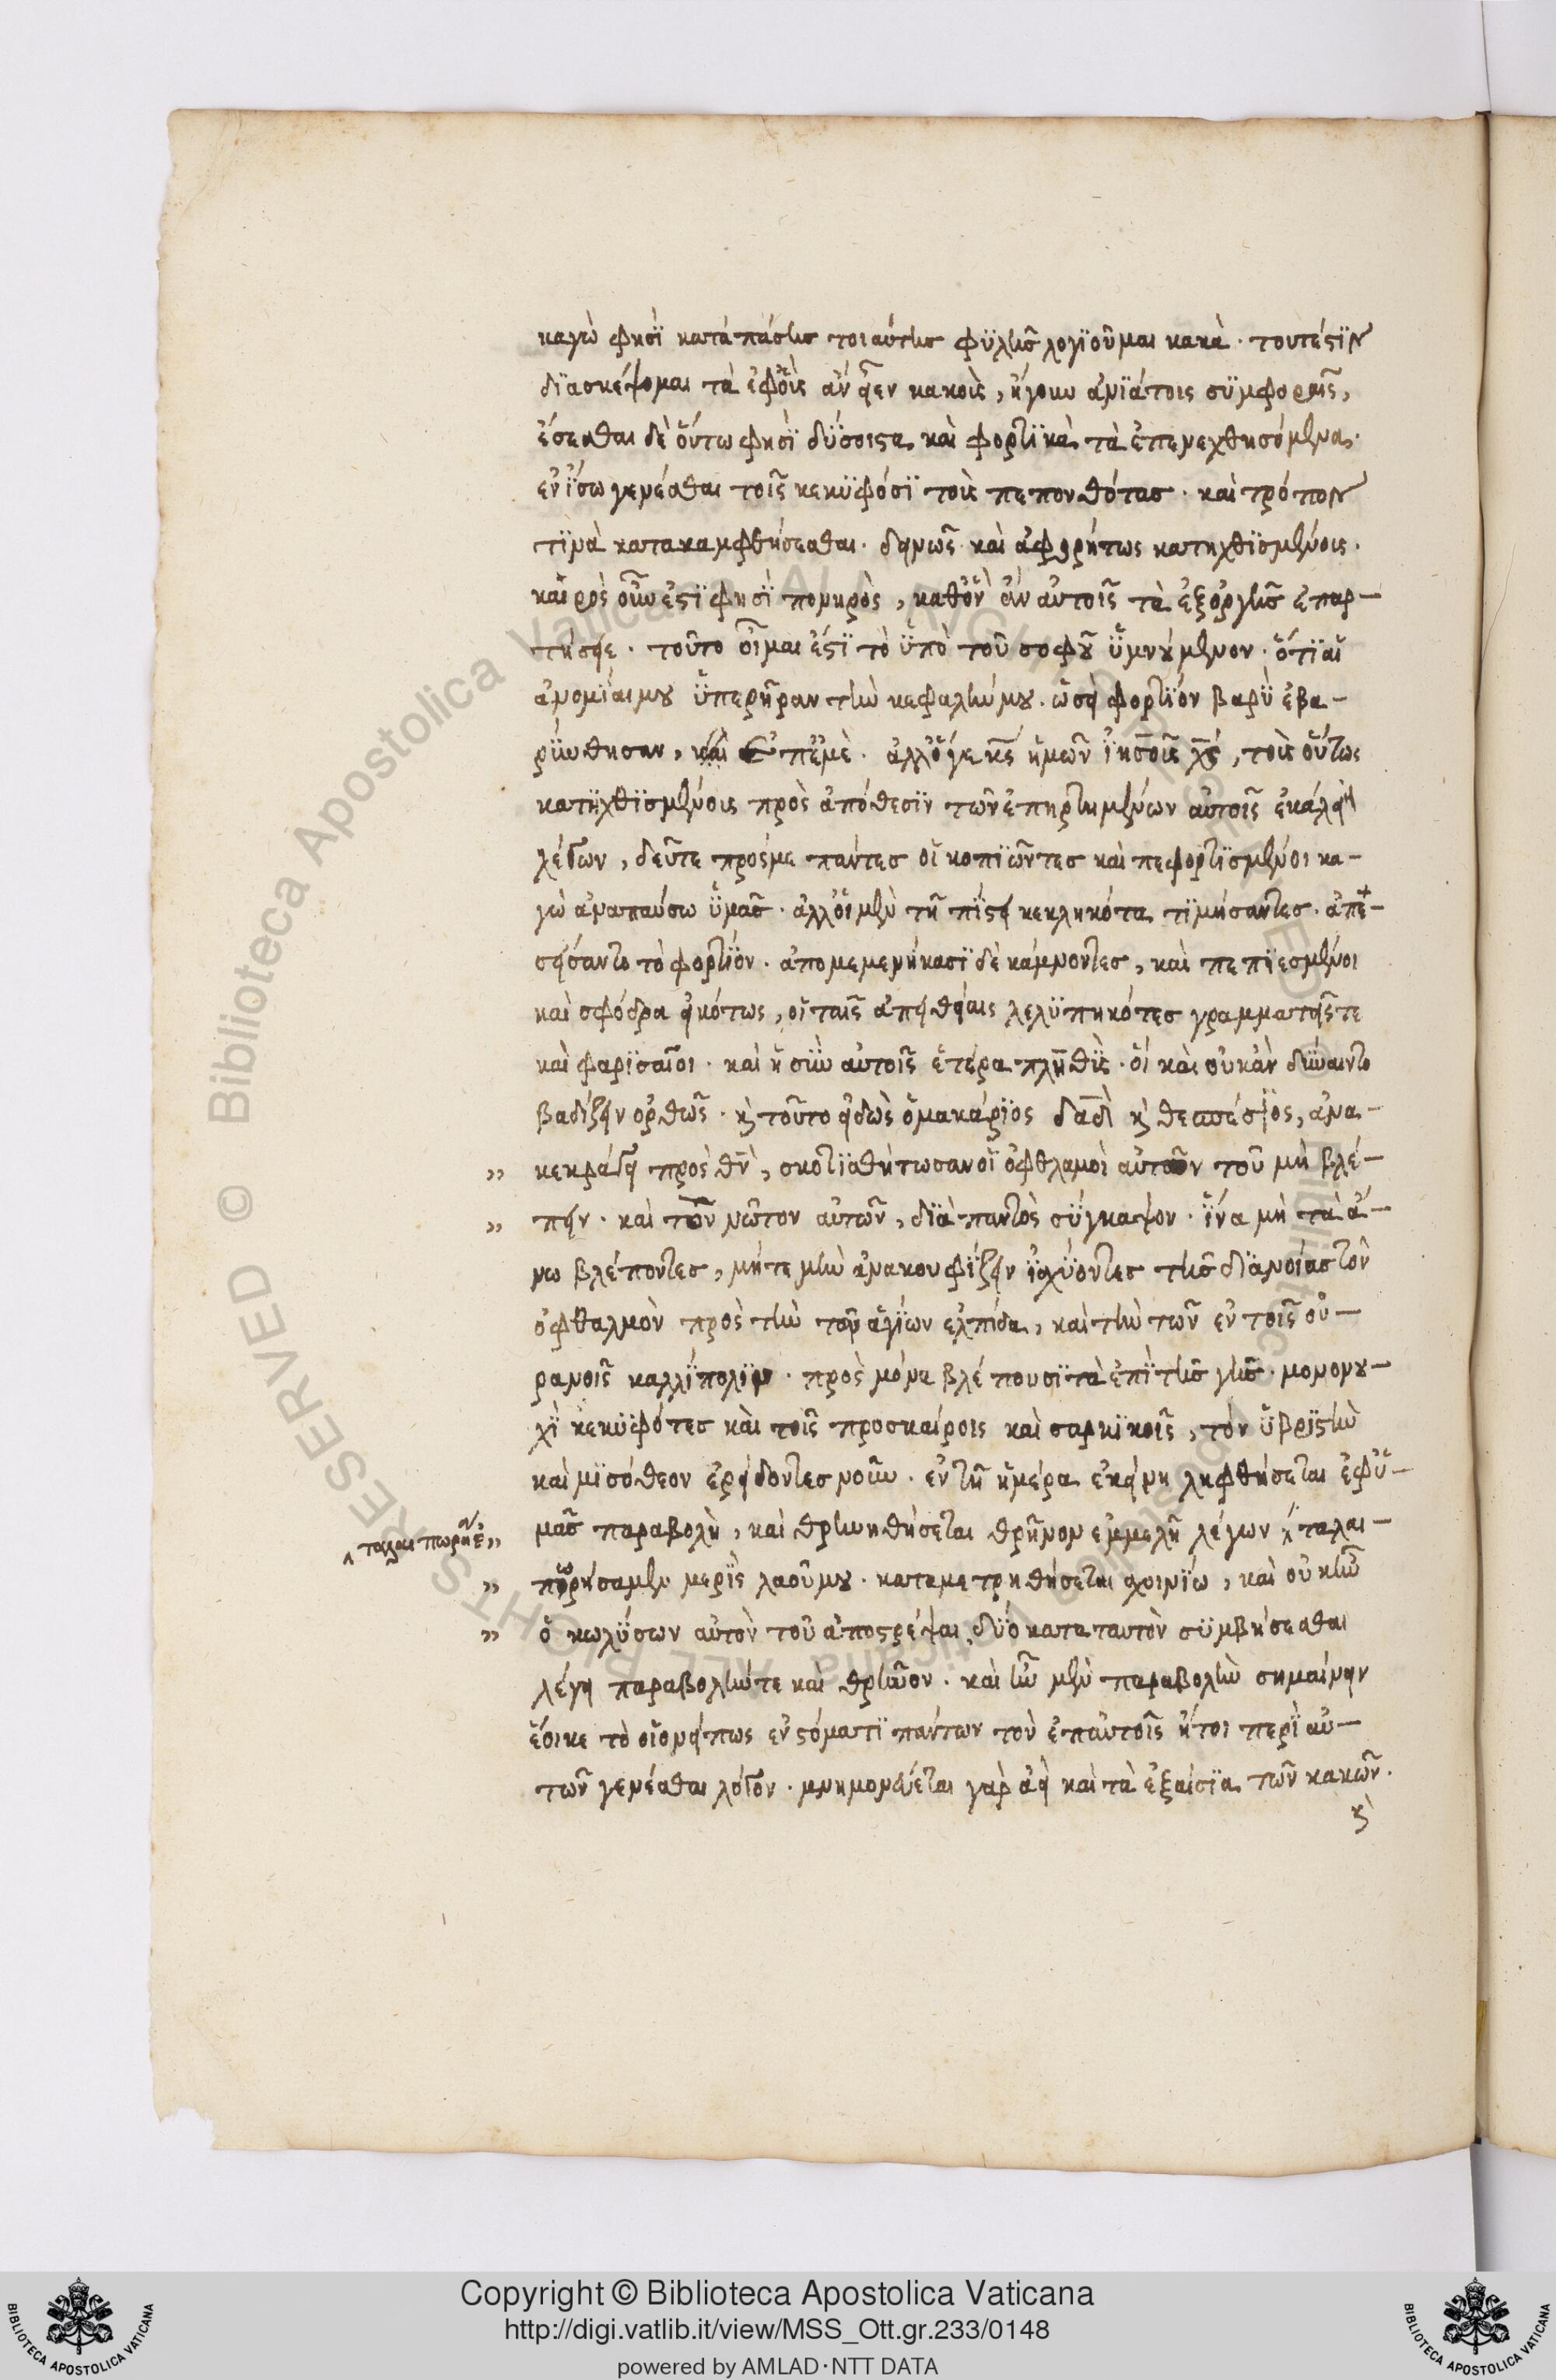 καγὼ φησὶ κατὰ πάσης τοιαύτης φϋλῆς λογϊοῦμαι κακὰ · τουτέστϊν
δϊασκέψομαι τὰ ἐφ' οἷς ἂν εἶεν κακοῖς, ἤγουν ἀνϊάτοις σϋμφοραῖς,
ἔσεσθαι δὲ οὕτω φησὶ δύσοιστα καὶ φορτϊκὰ τὰ ἐπενεχθησόμενα.
ἐν ἴσω γενέσθαι τοῖς κεκϋφόσϊ τοὺς πεπονθότας · καὶ τρόπον
τϊνὰ κατακαμφθήσεσθαι · δεινῶς καὶ ἀφορήτως κατηχθϊσμένοις.
καιρὸς οὖν ἐστὶ φησὶ πονηρὸς, καθ' ὃν ἂν αὐτοῖς τὰ ἐξ ὀργῆς ἐπαρ-
τήσηε · τοῦτο οἶμαι ἐστὶ τὸ ὑπὸ τοῦ σοφοῦ ὑμνούμενον · ὅτι αἱ
ἀνομίαι μου ὑπερῆραν τὴν κεφαλήν μου · ὡσεὶ φορτίον βαρὺ ἐβα-
ρύνθησαν, ἐπ' ἐμὲ · ἀλλ' ὅγε κς ἡμῶν ἰησοῦς χς, τοὺς οὕτως
κατηχθϊσμένους πρὸς ἀπόθεσϊν τῶν ἐπηρτημένων αὐτοῖς ἐκάλει
λέγων, δεῦτε πρός με πάντες οἱ κοπϊῶντες καὶ πεφορτϊσμένοι κα-
γὼ ἀναπαύσω ὑμᾶς · ἀλλ' οἱ μὲν τῆ πίστει κεκληκότα τϊμήσαντες · ἀπε-
σείσαντο τὸ φορτίον · ἀπομεμενήκασϊ δὲ κάμνοντες, καὶ πεπϊεσμένοι
καὶ σφόδρα εἰκότως, οἱ ταῖς ἀπειθείαις λελϋπηκότες γραμματεῖς τε
καὶ φαρϊσαῖοι · καὶ ἡ σὺν αὐτοῖς ἑτέρα πληθὺς · οἳ καὶ οὐκ ἂν δύναιντο
βαδίζειν ὀρθῶς · καὶ τοῦτο εἰδὼς ὁ μακάρϊος δαδ καὶ θεσπέσϊος, ἀνα-
" κεκράγει πρὸς θν, σκοτϊσθήτωσαν οἱ ὀφθλαμοὶ αὐτῶν τοῦ μὴ βλέ-
" πειν · καὶ τὸν νῶτον αὐτῶν, δϊὰ παντὸς σύγκαψον · ἵνα μὴ τὰ ἄ-
νω βλέποντες, μήτε μὴν ἀνακουφίζειν ἰσχύοντες τῆς δϊανοίας τὸν
ὀφθαλμὸν πρὸς τὴν τῶν ἁγίων ἐλπίδα, καὶ τὴν τῶν ἐν τοῖς οὐ-
ρανοῖς καλλίπολϊν · πρὸς μόνα βλέπουσϊ τὰ ἐπὶ τῆς γῆς · μονονου-
χὶ κεκϋφότες καὶ τοῖς προσκαίροις καὶ σαρκϊκοῖς, τὸν ὑβρϊστὴν
καὶ μϊσόθεον ἐρείδοντες νοῦν · ἐν τῆ ἡμέρα ἐκείνη ληφθήσεται ἐφ' ὑ-
^ ταλαιπωρία " μᾶς παραβολὴ, καὶ θρηνηθήσεται θρῆνον ἐμμελῆ λέγων ^ ταλαι-
" πωρήσαμεν μερὶς λαοῦ μου · καταμετρηθήσεται σχοινίω, καὶ οὐκ ἦν
" ὁ κωλύσων αὐτὸν τοῦ ἀποστρέψαι, δύο κατὰ ταυτὸν σϋμβήσεσθαι
λέγει παραβολήν τε καὶ θρῆνον · καὶ ἦν μὲν παραβολὴν σημαίνειν
ἔοικε τὸ οἱονείπως ἐν στόματϊ πάντων τὸν ἐπ' αὐτοῖς ἤτοι περὶ αὐ-
τῶν γενέσθαι λόγον · μνημονεύεται γὰρ ἀεὶ καὶ τὰ ἐξαίσϊα τῶν κακῶν.
καὶ
Copyright © Biblioteca Apostolica Vaticana
http://digi.vatlib.it/view/MSS_Ott.gr.233/0148
powered by AMLAD·NTT DATA